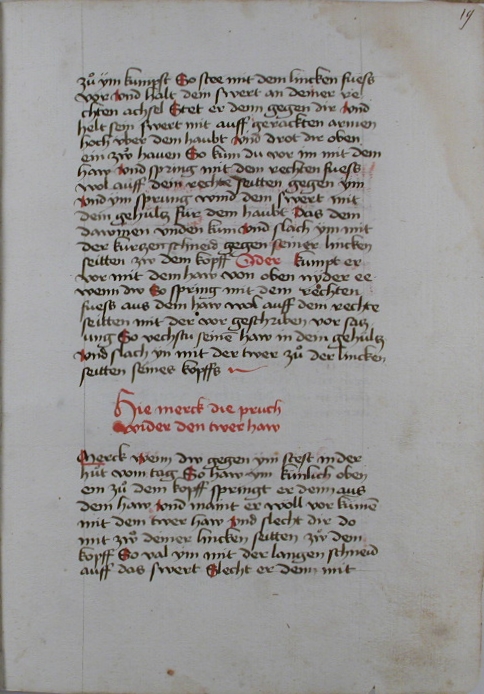 19
zů ÿm kumpst So stee mit dem lincken fuess
vor Vnd halt dein swert an deiner re
chten achsel Stet er denn gegen dir Vnd
helt sein swert mit auff gerackten armen
hoch vber dem haubt Vnd drot dir oben
ein zw hauen So kům du vor im mit dem
haw Vnd spring mit dem rechten fuess
wol auff dein rechte seitten gegen ÿm
Vnd ym sprung wind dein swert mit
dein gehülcz für dein haubt Das dein
dawmen vnden kum Vnd slach ÿm mit
der kurczen schneid gegen seiner lincken
seitten zw dem kopff Oder kumpt er
vor mit dem haw von oben nÿder ee
wenn dw So spring mit dem rechten
fuess aus dem haw wol auff dein rechte
seitten mit der vor geschriben vor sacz
ung So vechstu seinē haw in dein gehülcz
Vnd slach yn mit der twer zů der lincken
seitten seines kopffs
Hie merck die pruch
wider den twer haw
Merck wenn dw gegen ÿm stest in der
hůt vom tag So haw ÿm künlich oben
ein zů dem kopff springt er denn aus
dem haw Vnd maint er woll vor kumē
mit dem twer haw Vnd slecht dir do
mit zw deiner lincken seitten zw dem
kopff So val ÿm mit der langen schneid
auff das swert Slecht er denn mit